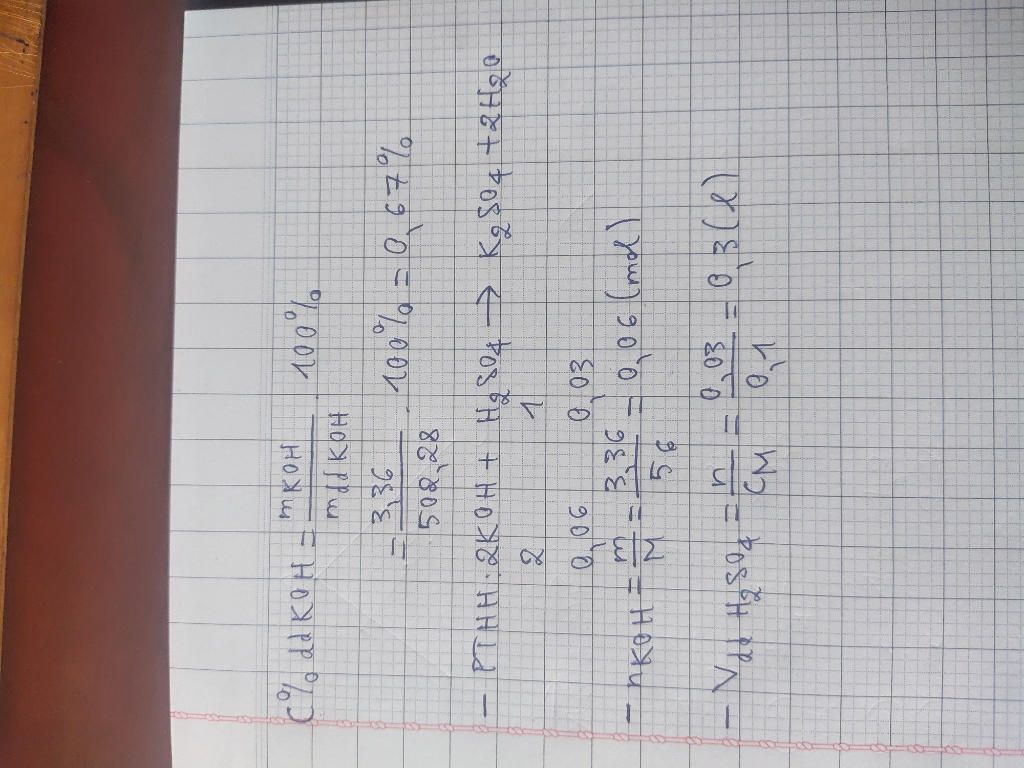 C% dd KOH = mKOH / mdd KOH . 100%
= 3,36 / 502,28 . 100% = 0,67%
- PTHH: 2KOH + H2SO4 → K2SO4 + 2H2O
2 1
0,06 0,03
- nKOH = m / M = 3,36 / 56 = 0,06 (mol)
- Vdd H2SO4 = n / CM = 0,03 / 0,1 = 0,3 (l)